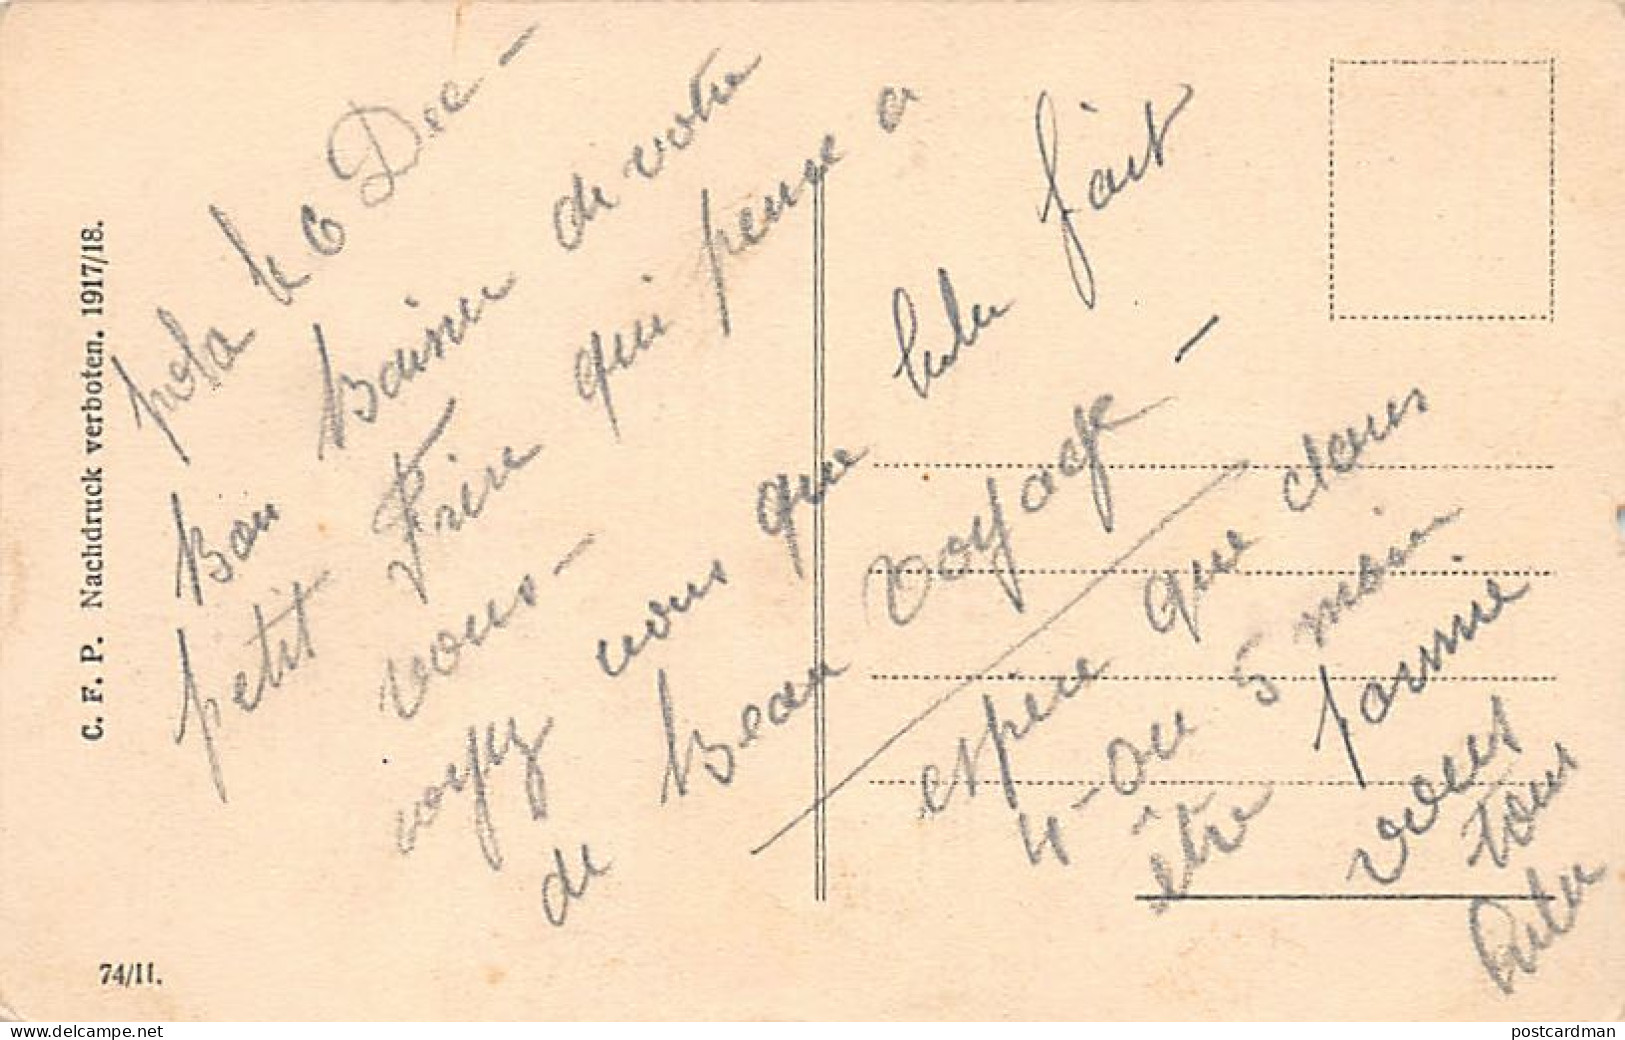 C. F. P. Nachdruck verboten. 1917/18.
74/II.
Pola le 6 Dec-
Bon Baiser de votre
petit Frere qui pense a
vous-
voyez vous que Lulu fait
de Beau voyage-
espere que dans
4-ou 5 moin
être parmie
vous tous
Lulu
www.delcampe.net
postcardman